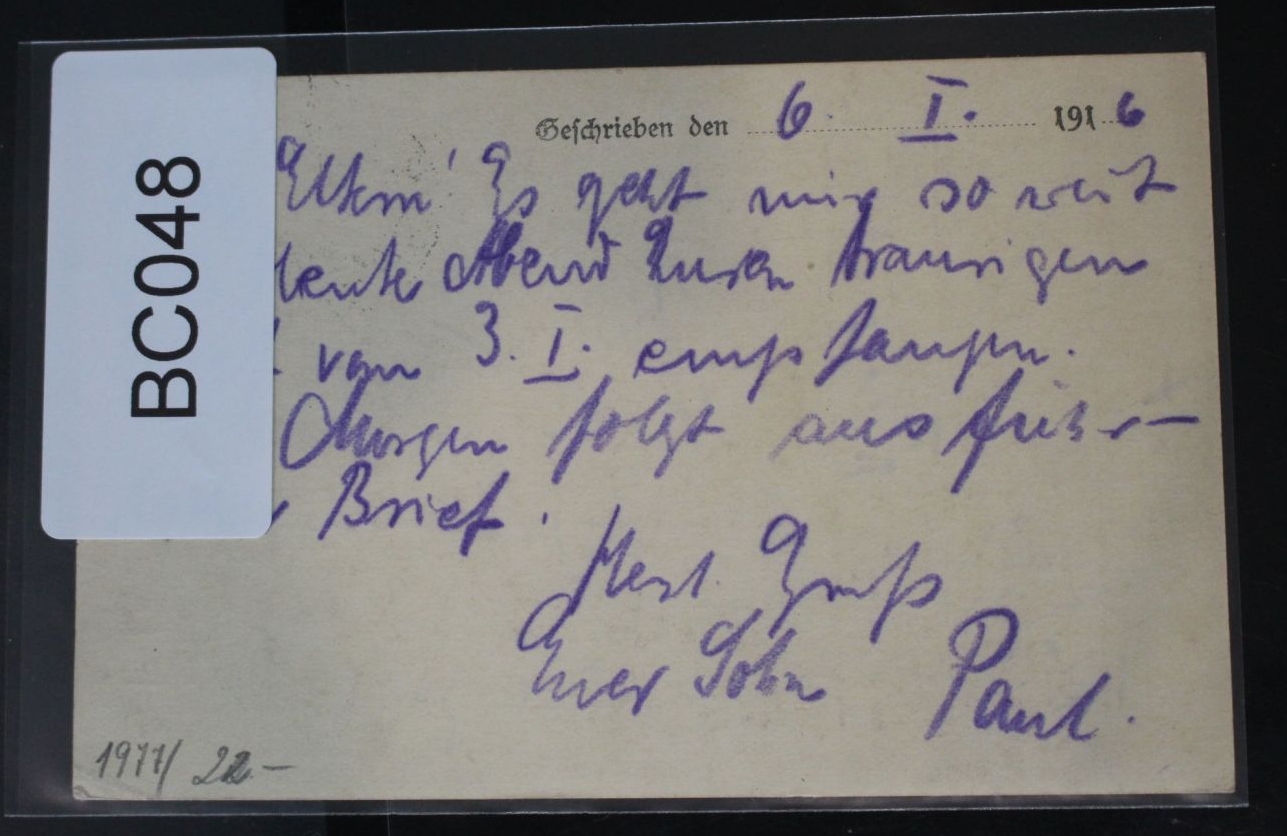 BC048
Geschrieben den 6. I. 1916
Eltern! Es geht mir so weit
heute Abend Euren traurigen
vom 3. I. empfangen.
Morgen folgt ausführ-
Brief.
Herzl. Gruß
Euer Sohn Paul.
1977/ 22-